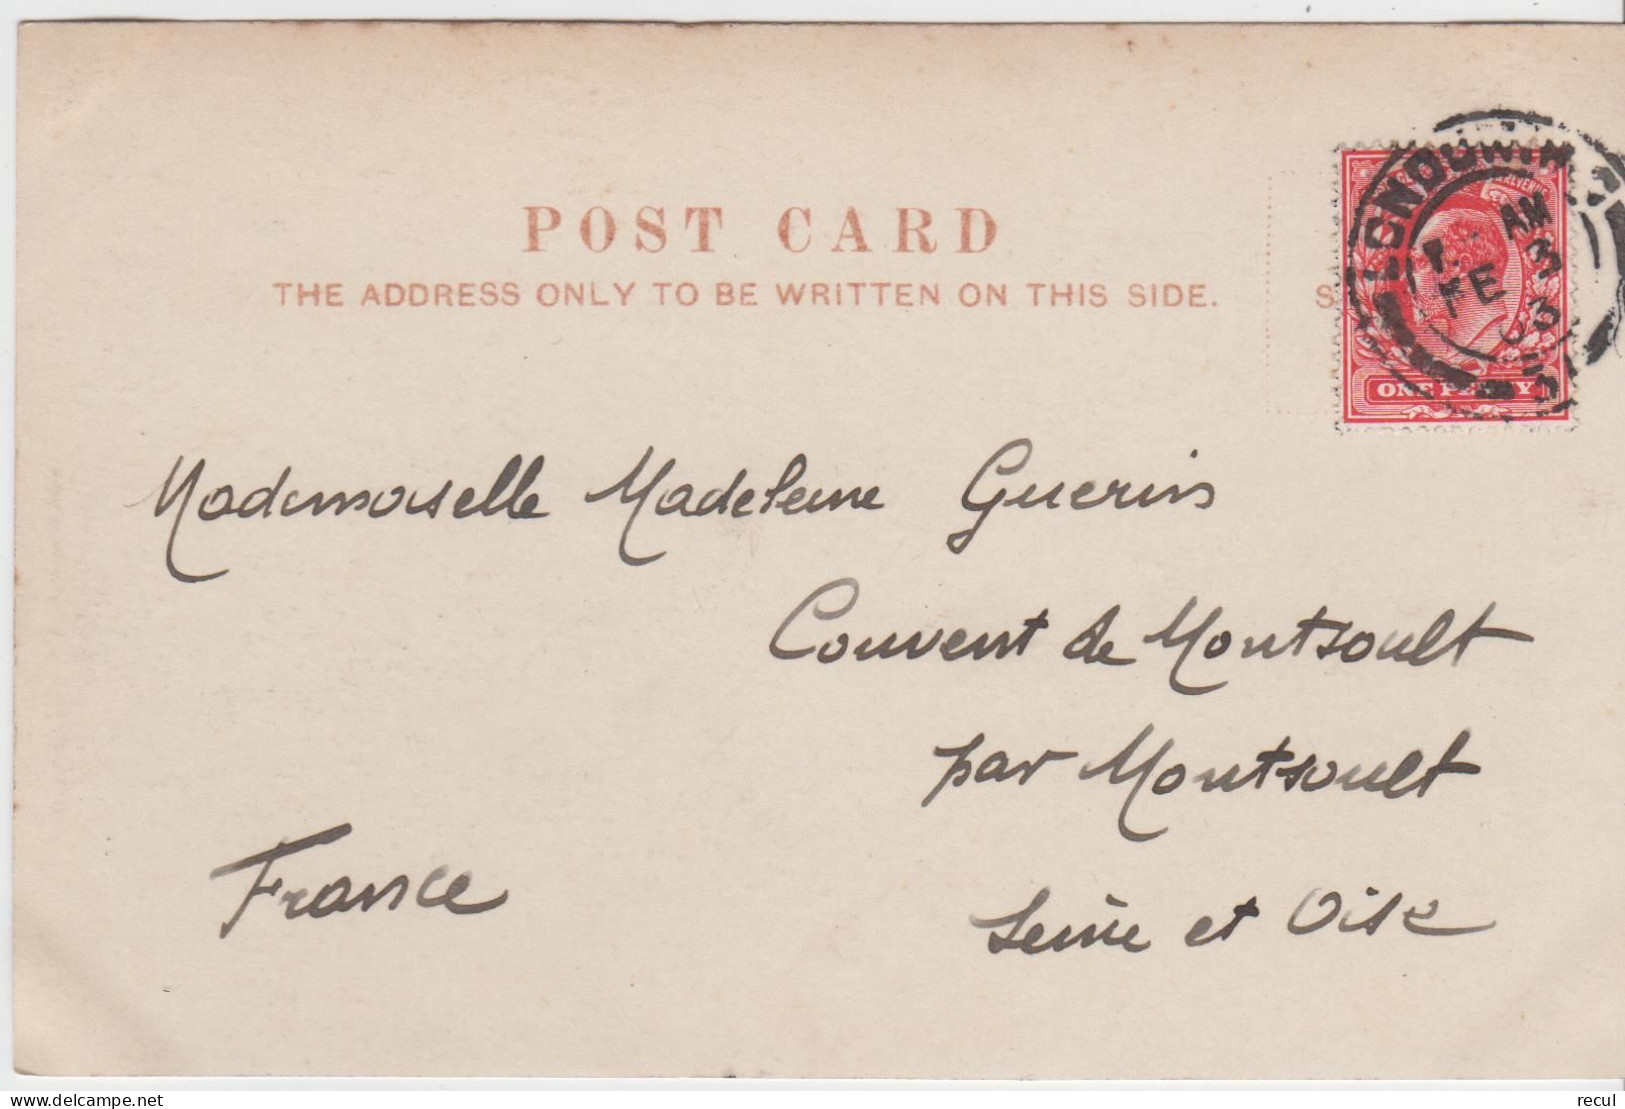 POST CARD
THE ADDRESS ONLY TO BE WRITTEN ON THIS SIDE.
S
LONDON. W
AM
FE 3
03
ONE PENNY
Mademoiselle Madeleine Guerin
Couvent de Montsoult
par Montsoult
Seine et Oise
France
delcampe.net
recul